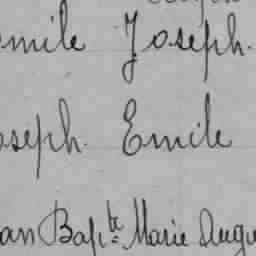 emile Joseph.
oseph. Emile
an Bapte Marie Augu